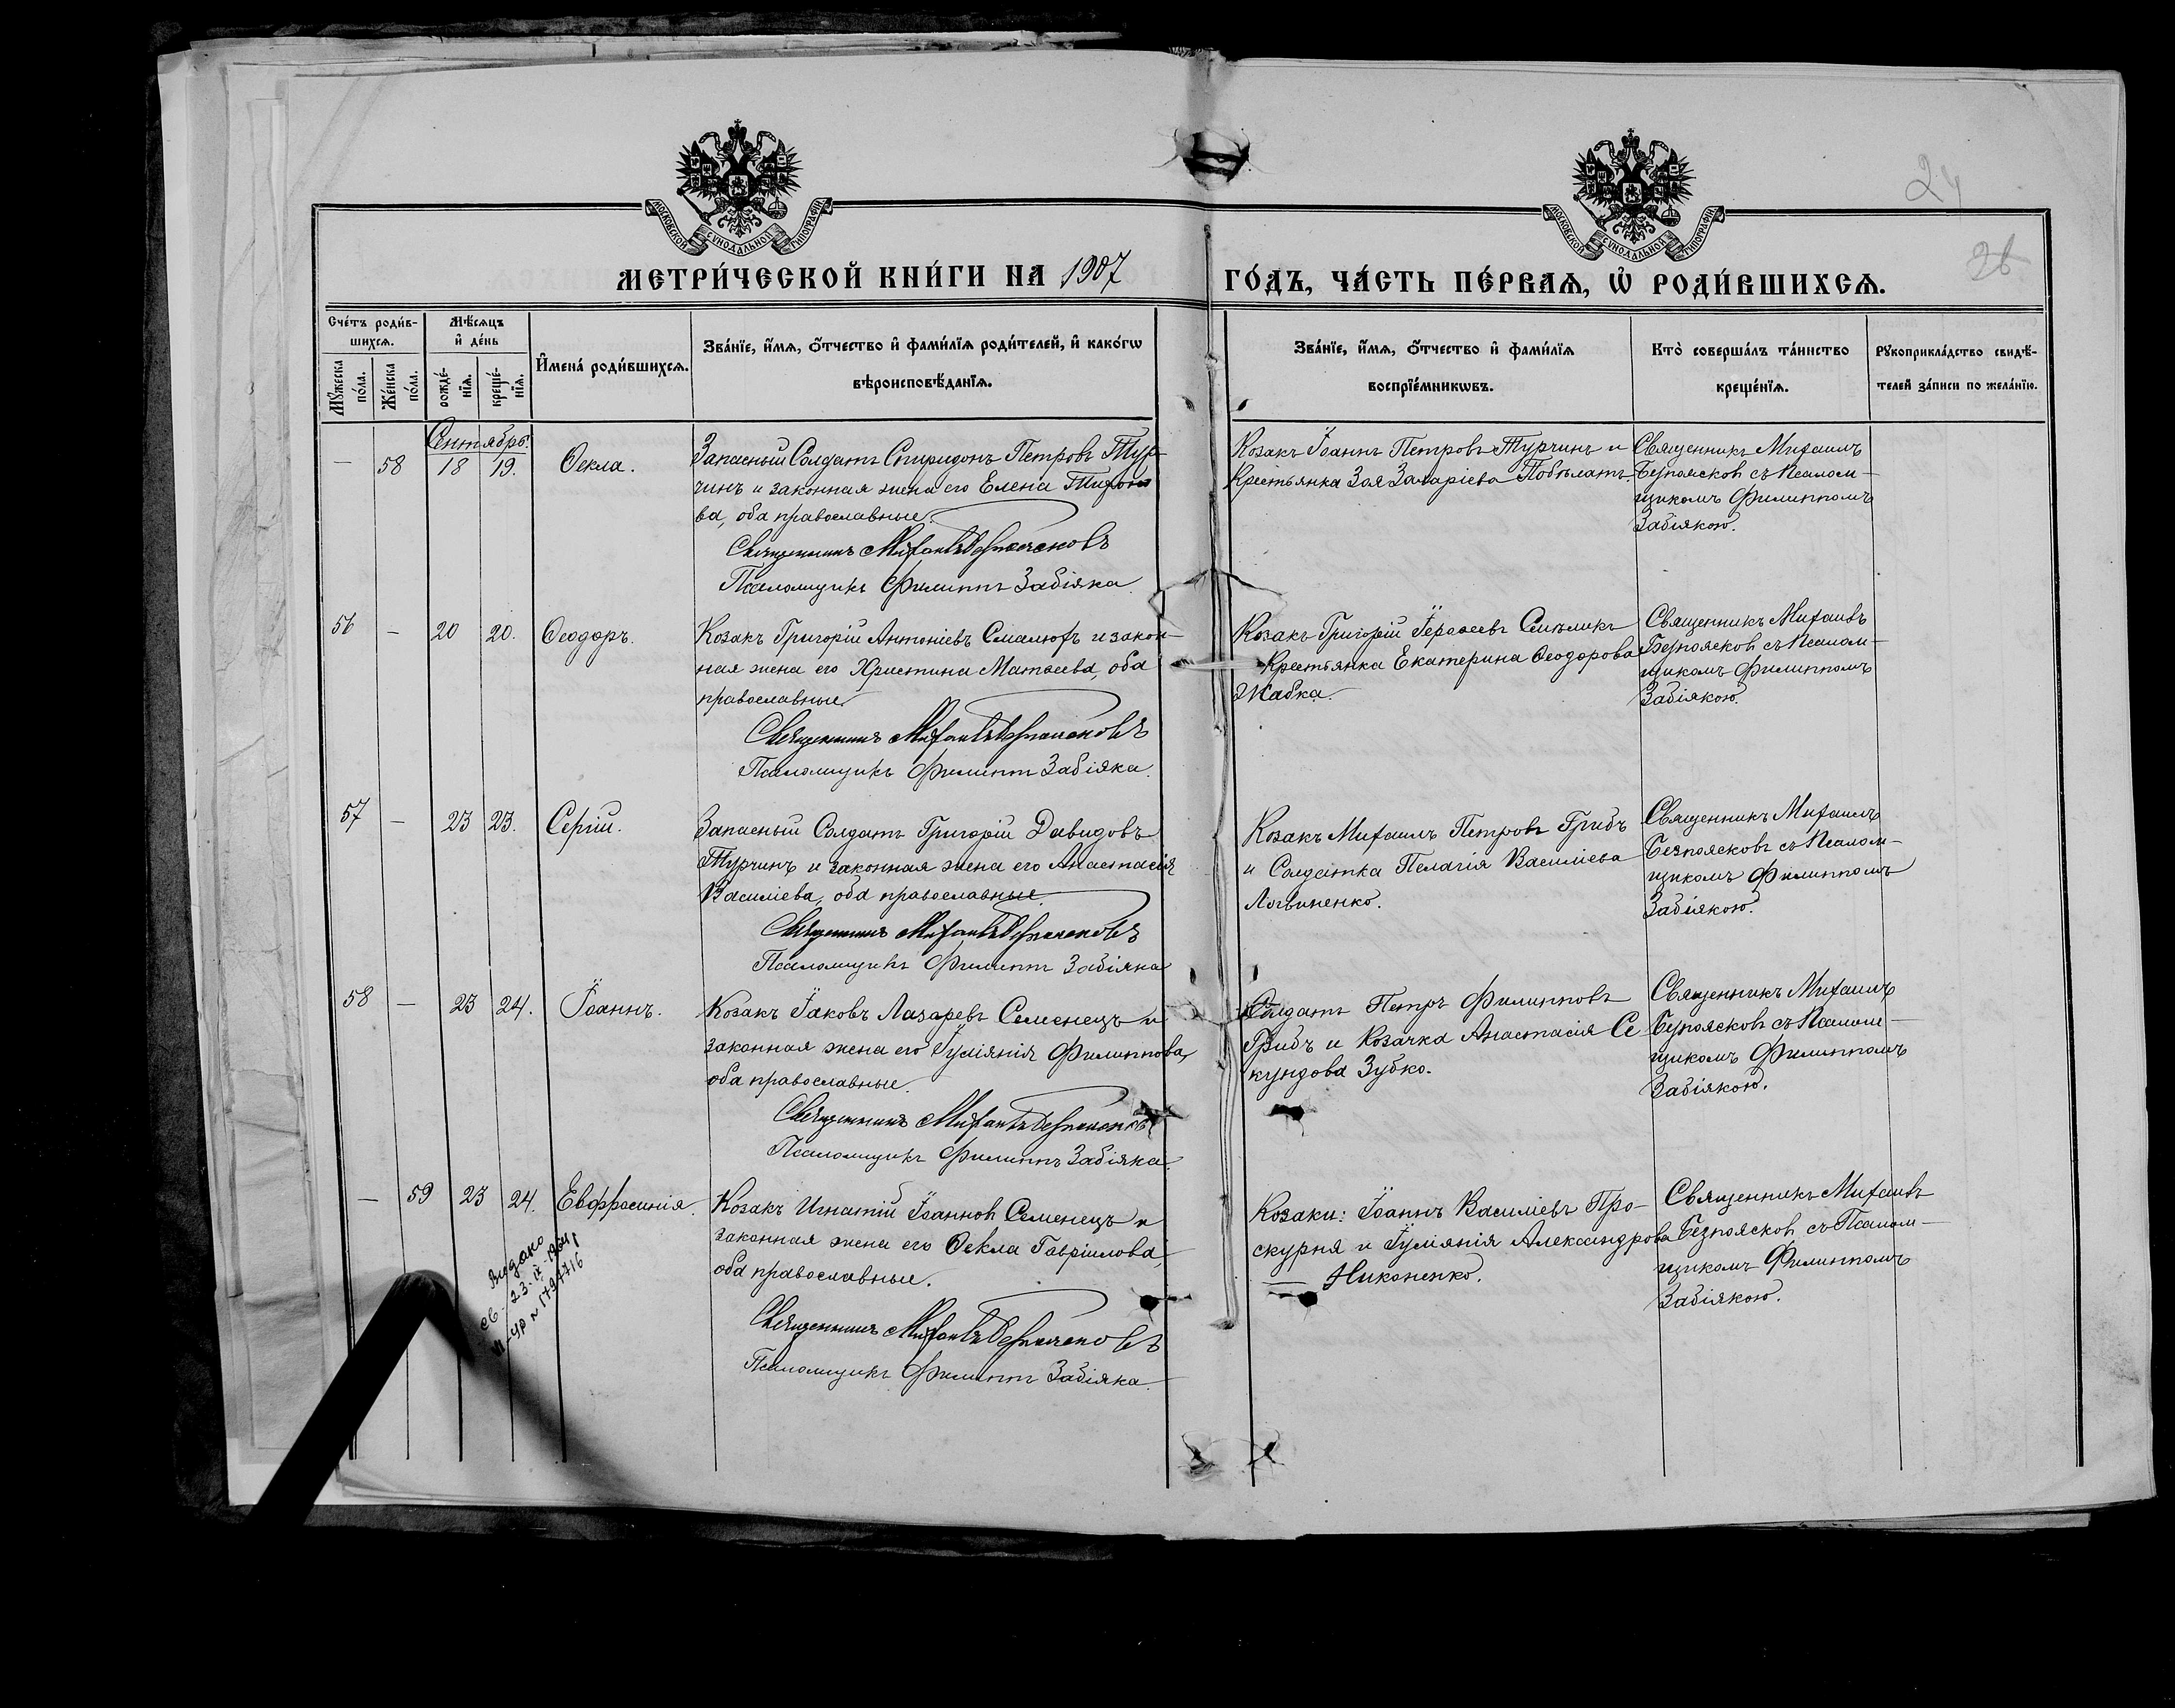 МОСКОВСКОЙ СУНОДАЛЬНОЙ ТИПОГРАФІИ
МОСКОВСКОЙ СУНОДАЛЬНОЙ ТИПОГРАФІИ
24
26
МЕТРИ́ЧЕСКОЙ КНИ́ГИ НА 1907
ГО́ДЪ, ЧА́СТЬ ПЕ́РВАѦ, Ѡ҆ РОДИ́ВШИХСѦ.
Сче́тъ роди́в-
шихсѧ.
Мѣ́сѧцъ
и҆ де́нь
Мꙋ́жеска
по́ла.
Же́нска
по́ла.
рожде́-
нїѧ.
креще́-
нїѧ.
И҆мена̀ роди́вшихсѧ.
Зва́нїе, и҆́мѧ, ѻ҆́тчество и҆ фами́лїѧ роди́телей, и҆ како́гѡ
вѣроисповѣ́данїѧ.
Зва́нїе, и҆́мѧ, ѻ҆́тчество и҆ фами́лїѧ
воспрїе́мникѡвъ.
Кто̀ соверша́лъ та́инство
креще́нїѧ.
Рꙋкоприкла́дство свидѣ́-
телей за́писи по жела́нїю.
Сентябрь.
— 58 18 19. Ѳекла.
Запасный Солдатъ Спиридонъ Петровъ Тур-
чинъ и законная жена его Елена
ва, оба православные.
Священникъ Михаилъ Безпоясковъ
Псаломщикъ Филиппъ Забіяка.
Козакъ Іоаннъ Петровъ Турчинъ и
Крестьянка Зоя Захаріева
Священникъ Михаилъ
Безпоясковъ съ Псалом-
щикомъ Филиппомъ
Забіякою.
56 — 20 20. Ѳеодоръ.
Козакъ Григорій Антоніевъ Смалюхъ и закон-
ная жена его Христина Матѳеева, оба
православные.
Священникъ Михаилъ Безпоясковъ
Псаломщикъ Филиппъ Забіяка.
Козакъ Григорій
Крестьянка Екатерина Ѳеодорова
Жабка.
Священникъ Михаилъ
Безпоясковъ съ Псалом-
щикомъ Филиппомъ
Забіякою.
57 — 23 23. Сергій.
Запасный Солдатъ Григорій Давидовъ
Турчинъ и законная жена его Анастасія
Василіева, оба православные.
Священникъ Михаилъ Безпоясковъ
Псаломщикъ Филиппъ Забіяка
Козакъ Михаилъ Петровъ Грибъ
и Солдатка Пелагія Василіева
Логвиненко.
Священникъ Михаилъ
Безпоясковъ съ Псалом-
щикомъ Филиппомъ
Забіякою.
58 — 23 24. Іоаннъ.
Козакъ Іаковъ Лазаревъ Семенецъ и
законная жена его Іуліянія Филиппова,
оба православные.
Священникъ Михаилъ Безпоясковъ
Псаломщикъ Филиппъ Забіяка.
Солдатъ Петръ Филипповъ
Грибъ и Козачка Анастасія Се
кундова Зубко.
Священникъ Михаилъ
Безпоясковъ съ Псалом-
щикомъ Филиппомъ
Забіякою.
— 59 23 24. Евфросинія.
Козакъ Игнатій Іоанновъ Семенецъ и
законная жена его Ѳекла Гавріилова,
оба православные.
Священникъ Михаилъ Безпоясковъ
Псаломщикъ Филиппъ Забіяка.
Козаки: Іоаннъ Василіевъ Про-
скурня и Іуліянія Александрова
Никоненко.
Священникъ Михаилъ
Безпоясковъ съ Псалом-
щикомъ Филиппомъ
Забіякою.
Видано
св. 23-IX-1964